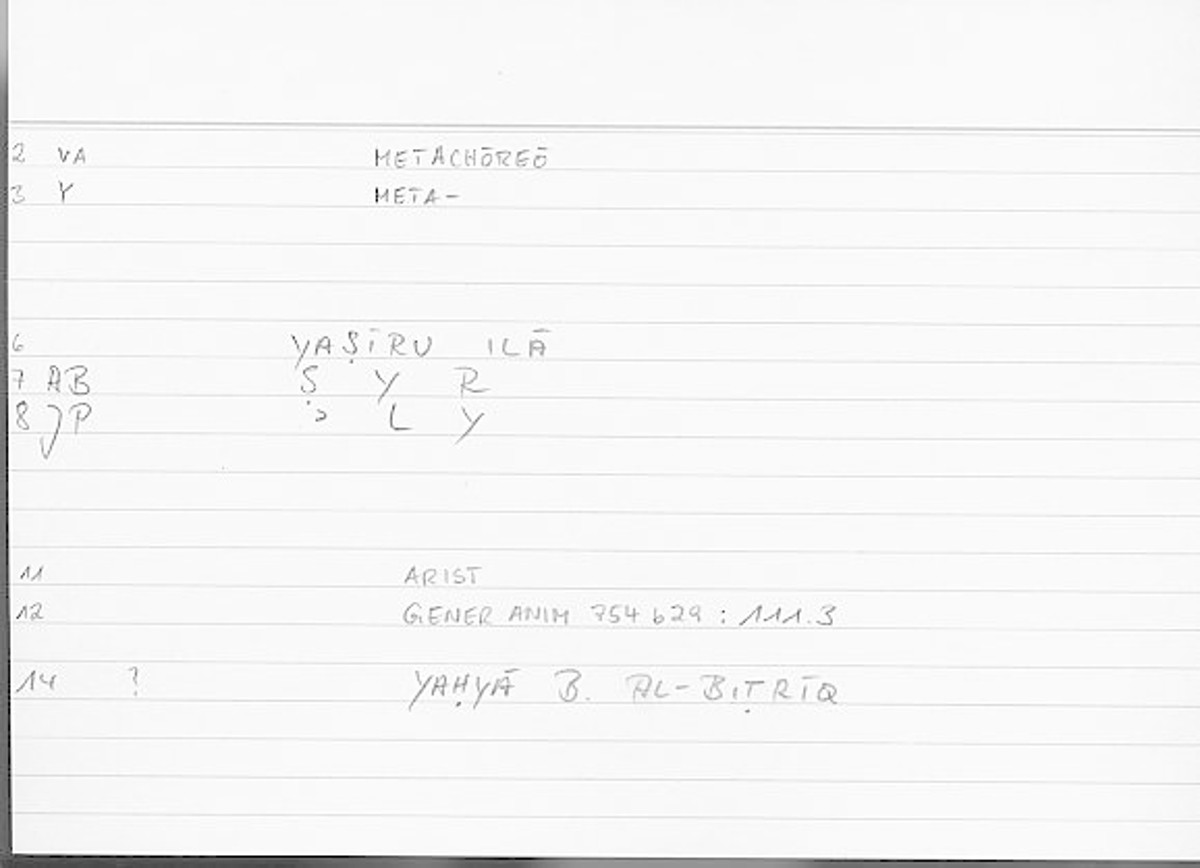 2 VA METACHŌREŌ
3 Y META-
6 YAṢĪRU ILĀ
7 AB Ṣ Y R
8 JP ʾ L Y
11 ARIST
12 GENER ANIM 754 b29 : 111.3
14 ? YAḤYĀ B. AL-BIṬRĪQ